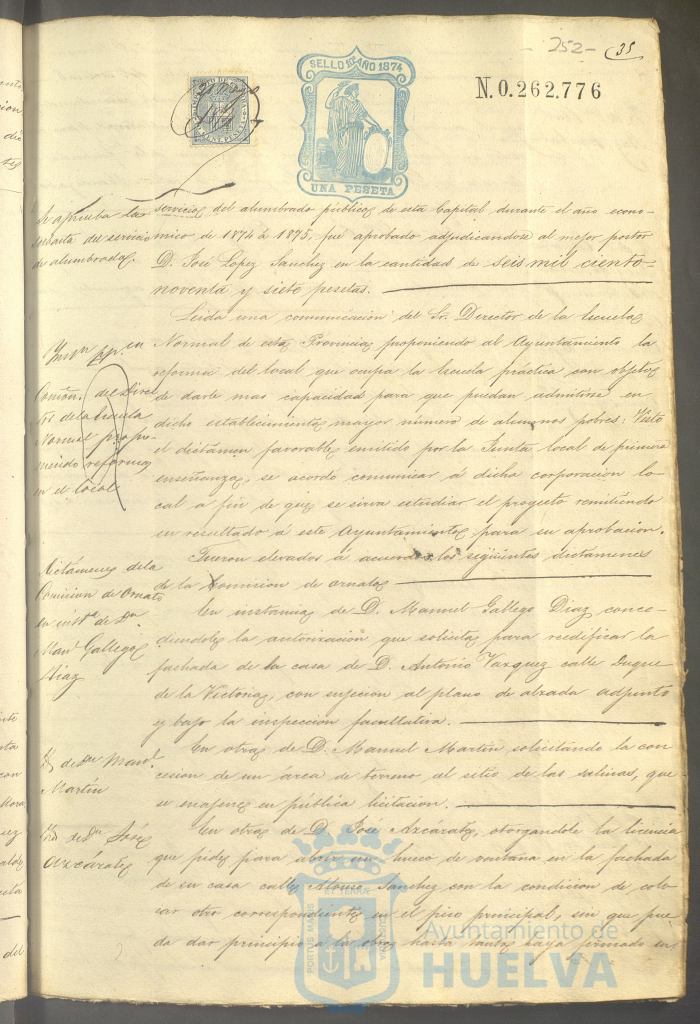 -252-
35
SELLO 10º AÑO 1874
UNA PESETA
N. 0.262.776
Se aprueba la
subasta del servicio
de alumbrado.
servicio del alumbrado público de esta Capital durante el año econo-
mico de 1874 á 1875, fué aprobado adjudicandose al mejor postor
D. José Lopez Sanchez en la cantidad de seis mil ciento
noventa y siete pesetas.
Comón. del Direc
tor de la Escuela
Normal propo-
niendo reformas
en el local
Leida una comunicación del Sr. Director de la Escuela
Normal de esta Provincia proponiendo al Ayuntamiento la
reforma del local que ocupa la Escuela práctica con objeto
de darle mas capacidad para que puedan admitirse en
dicho establecimiento mayor número de alumnos pobres: Visto
el dictámen favorable emitido por la Junta local de primera
enseñanza, se acordo comunicar á dicha corporacion lo-
cal a fin de que se sirva estudiar el proyecto remitiendo
su resultado á este Ayuntamiento para su aprobacion.
Dictámenes de la
Comision de Ornato
en insta. de Dn.
Manl. Gallego
Diaz
Fueron elevados á acuerdo los siguientes dictamenes
de la Comision de ornato
En instancia de D. Manuel Gallego Diaz conce-
diendole la autorización que solicita para reedificar la
fachada de la casa de D. Antonio Vazquez calle Duque
de la Victoria, con sujecion al plano de alzada adjunto
y bajo la inspección facultativa.
Id. de Dn. Manl.
Martin
En otra de D. Manuel Martin solicitando la con-
cesion de un área de terreno al sitio de las salinas, que
se enajene en pública licitacion.
Id. de Dn. José
Azcárate
En otra de D. José Azcárate, otorgandole la licencia
que pide para abrir un hueco de ventana en la fachada
de su casa calle Alonso Sanchez con la condicion de colo-
car otro correspondiente en el piso principal, sin que pue-
da dar principio á la obra hasta tanto haya firmado en
PORTUS MARIS
ET TERRÆ
CUSTODIA
Ayuntamiento de
HUELVA